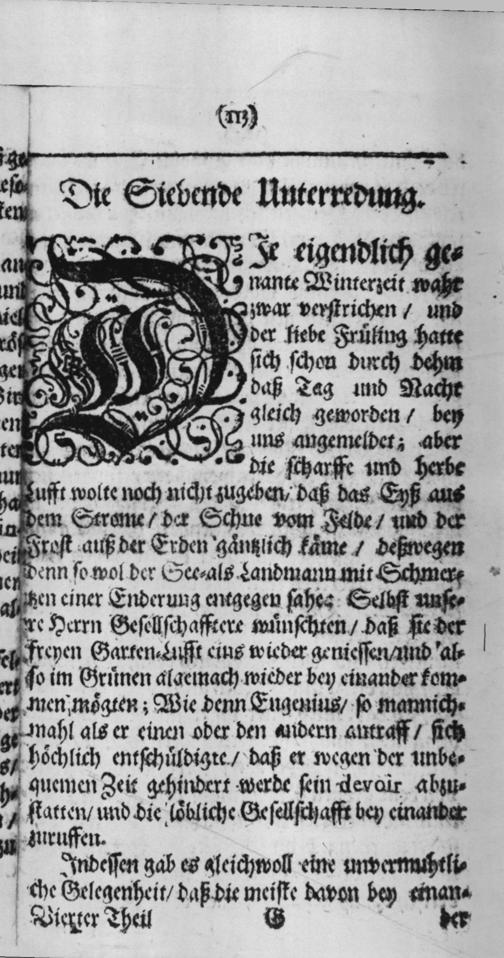 (113)
Die Siebende Unterredung.
DJe eigendlich ge-
nante Winterzeit wahr
zwar verstrichen / und
der liebe Früling hatte
sich schon durch dehm
daß Tag und Nacht
gleich geworden / bey
uns angemeldet; aber
die scharffe und herbe
Lufft wolte noch nicht zugeben / daß das Eyß aus
dem Strome / der Schne vom Felde / und der
Frost auß der Erden gäntzlich käme / deßwegen
denn so wol der See- als Landmann mit Schmer-
tzen einer Enderung entgegen sahe: Selbst unse-
re Herrn Gesellschafftere wünschten / daß sie der
freyen Garten-Lufft eins wieder geniessen / und al-
so im Grünen algemach wieder bey einander kom-
men mögten; Wie denn Eugenius / so mannich-
mahl als er einen oder den andern antraff / sich
höchlich entschüldigte / daß er wegen der unbe-
quemen Zeit gehindert werde sein devoir abzu-
statten / und die löbliche Gesellschafft bey einander
zuruffen.
Indessen gab es gleichwoll eine unvermuhtli-
che Gelegenheit / daß die meiste davon bey einan-
Vierter Theil G der